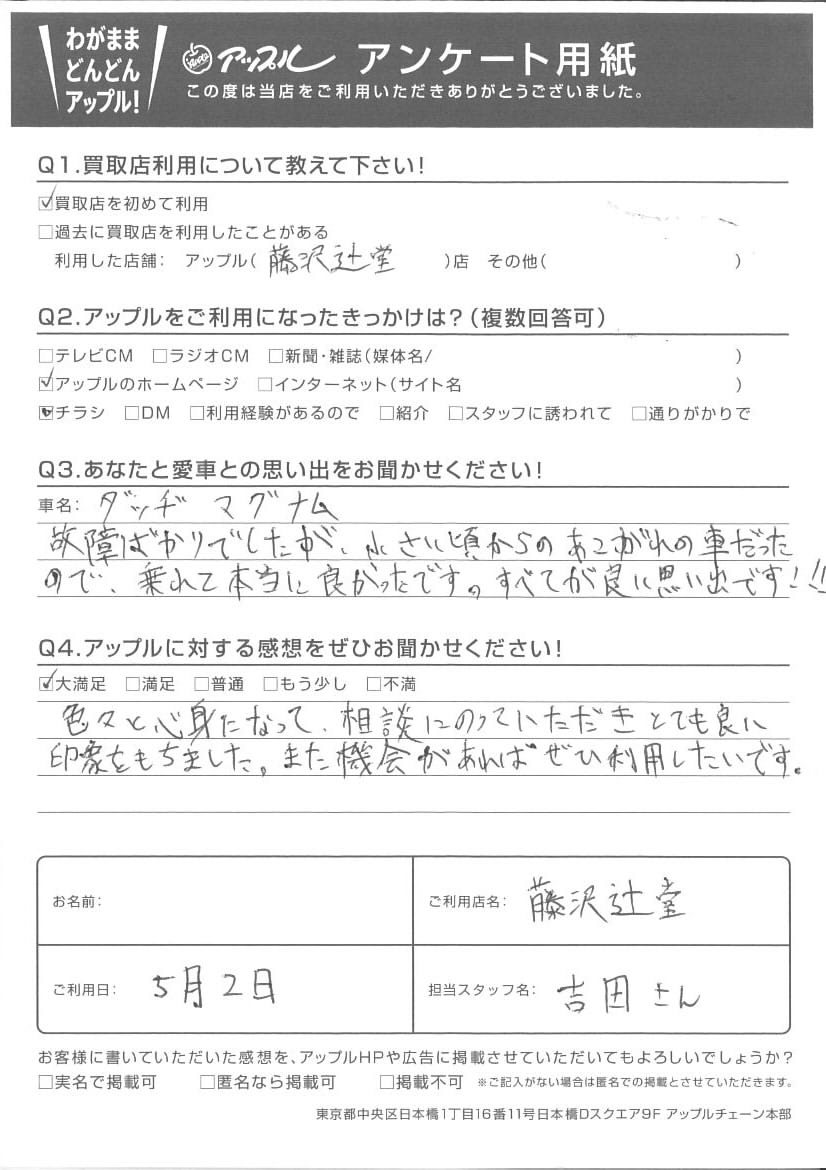 わがまま
どんどん
アップル!
Apple アップル アンケート用紙
この度は当店をご利用いただきありがとうございました。
Q1.買取店利用について教えて下さい!
☑買取店を初めて利用
□過去に買取店を利用したことがある
利用した店舗: アップル(藤沢辻堂)店 その他( )
Q2.アップルをご利用になったきっかけは?(複数回答可)
□テレビCM □ラジオCM □新聞・雑誌(媒体名/ )
☑アップルのホームページ □インターネット(サイト名 )
☑チラシ □DM □利用経験があるので □紹介 □スタッフに誘われて □通りがかりで
Q3.あなたと愛車との思い出をお聞かせください!
車名: ダッヂ マグナム
故障ばかりでしたが、小さい頃からのあこがれの車だった
ので、乗れて本当に良かったです。すべてが良い思い出です!!!
Q4.アップルに対する感想をぜひお聞かせください!
☑大満足 □満足 □普通 □もう少し □不満
色々と心身になって、相談にのっていただきとても良い
印象をもちました。また機会があればぜひ利用したいです。
お名前:
ご利用店名: 藤沢辻堂
ご利用日: 5月2日
担当スタッフ名: 吉田さん
お客様に書いていただいた感想を、アップルHPや広告に掲載させていただいてもよろしいでしょうか?
□実名で掲載可 □匿名なら掲載可 □掲載不可 ※ご記入がない場合は匿名での掲載とさせていただきます。
東京都中央区日本橋1丁目16番11号日本橋Dスクエア9F アップルチェーン本部